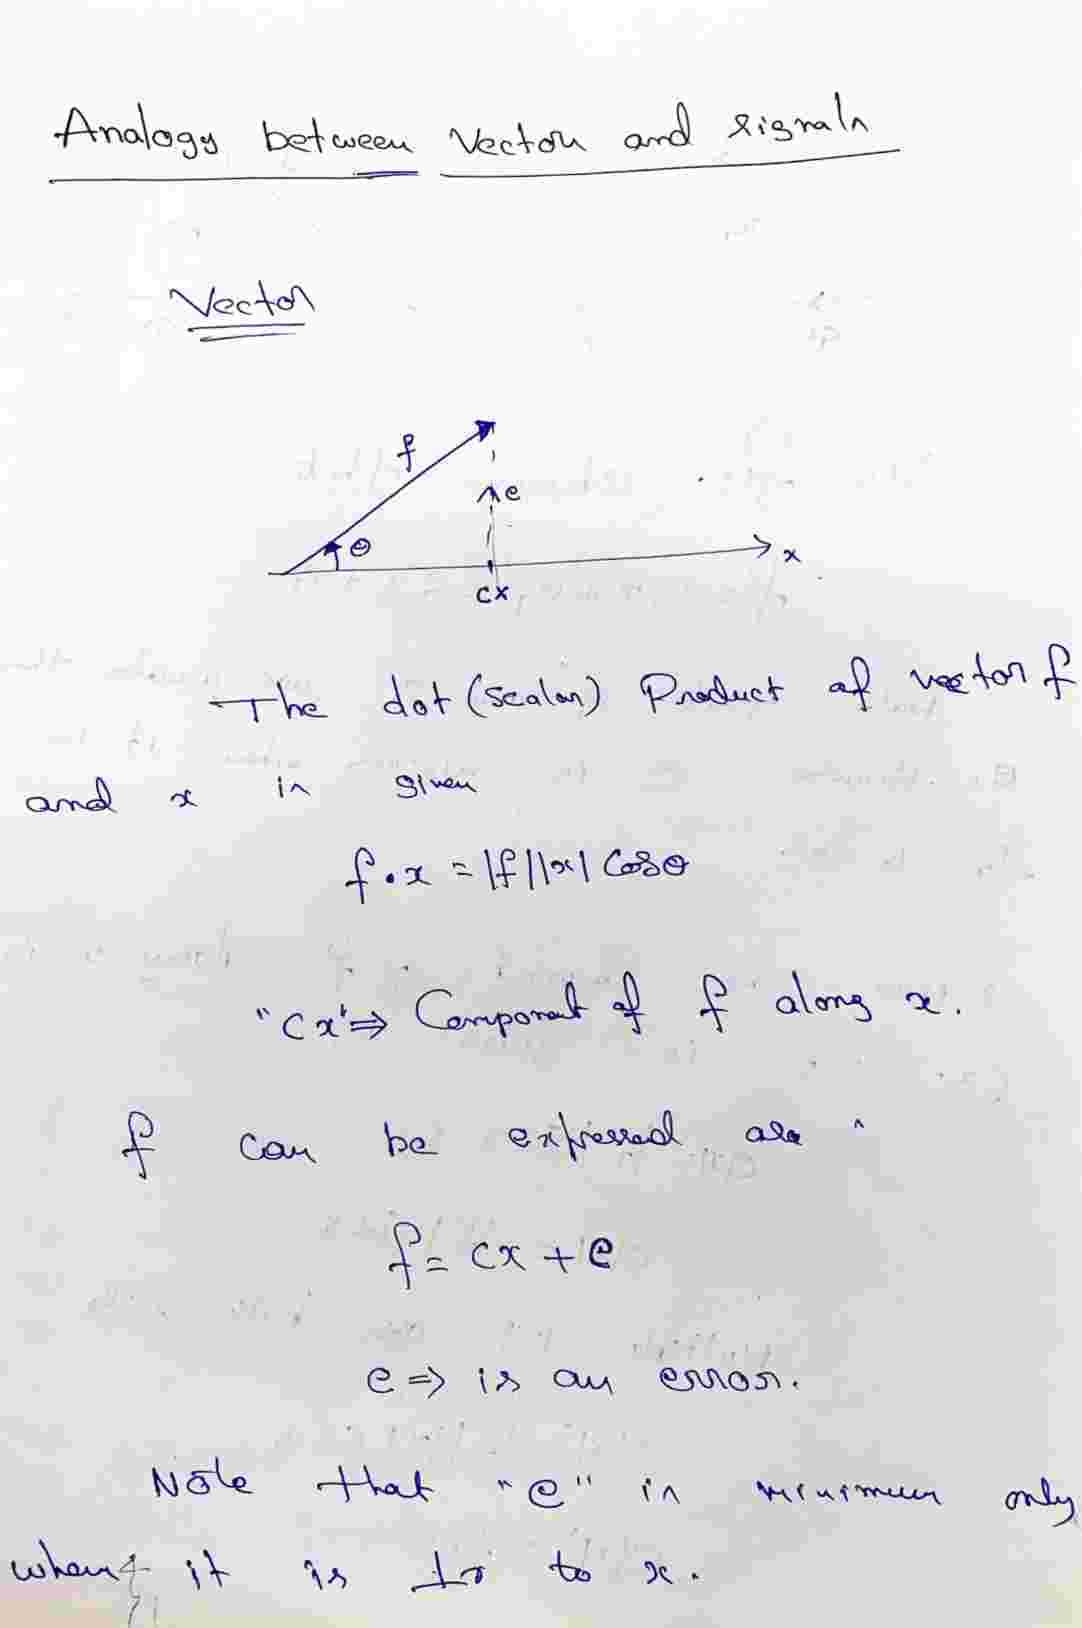 Analogy between Vector and signals
Vector
f
e
θ
x
cx
The dot (scalar) Product of vector f
and x is given
f.x = |f||x| Cosθ
"cx" ⇒ Component of f along x.
f can be expressed as
f = cx + e
e ⇒ is an error.
Note that "e" is minimum only
when it is ⊥r to x.